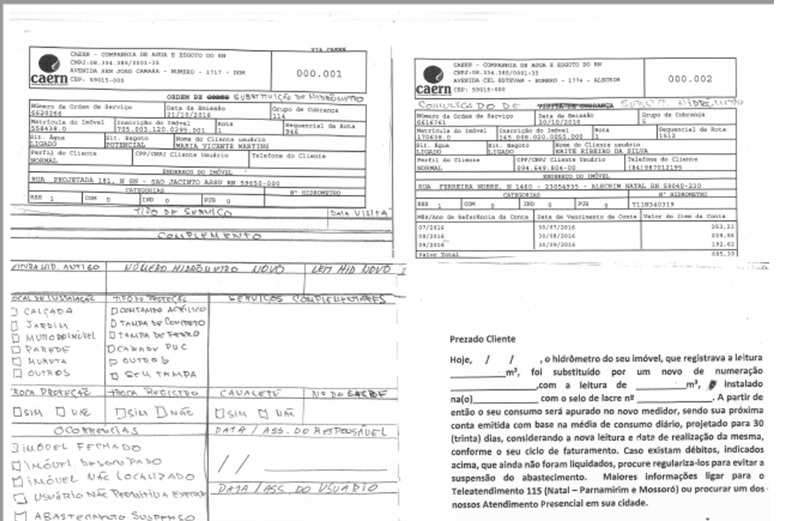 VIA CAERN
CAERN - COMPANHIA DE AGUA E ESGOTO DO RN
CNPJ:08.334.385/0001-35
AVENIDA SEN JOAO CAMARA - NUMERO - 1717 - DOM
CEP: 59015-000
caern
000.001
ORDEM DE SUBSTITUIÇÃO DE HIDRÔMETRO
Número da Ordem de Serviço Data da Emissão Grupo de Cobrança
6620266 31/10/2016 114
Matrícula do Imóvel Inscrição do Imóvel Rota Sequencial da Rota
558438.0 705.003.120.0295.001 1 946
Sit. Água Sit. Esgoto Nome do Cliente usuário
LIGADO POTENCIAL MARIA VICENTE MARTINS
Perfil do Cliente CPF/CNPJ Cliente Usuário Telefone do Cliente
NORMAL
ENDEREÇO DO IMÓVEL
RUA PROJETADA 181, N SN - SAO JACINTO ASSU RN 59650-000
CATEGORIAS Nº HIDRÔMETRO
RES 1 COM 0 IND 0 PUB 0
TIPO DE SERVIÇO DATA VISITA
COMPLEMENTO
NÚMERO HIDRÔMETRO NOVO LEIT HID NOVO
LOCAL DE INSTALAÇÃO TIPO DE PROTEÇÃO SERVIÇOS COMPLEMENTARES
CALÇADA
JARDIM TAMPA DE CONCRETO
TAMPA DE FERRO
PAREDE CANO DE PVC
MURETA OUTROS
OUTROS SEM TAMPA
TROCA PROTEÇÃO TROCA REGISTRO CAVALETE
SIM NÃO SIM NÃO SIM NÃO
OCORRENCIAS DATA / ASS. DO RESPONSÁVEL
IMÓVEL FECHADO
IMÓVEL DESOCUPADO / /
IMÓVEL NÃO LOCALIZADO
USUÁRIO NÃO DATA / ASS DO USUARIO
ABASTECIMENTO SUSPENSO
CAERN - COMPANHIA DE AGUA E ESGOTO DO RN
CNPJ:08.334.385/0001-35
AVENIDA CEL ESTEVAM - NUMERO - 1774 - ALECRIM
CEP: 59015-000
caern
000.002
COMUNICADO DE VISITA DE COBRANÇA SUBSTIT. HIDRÔMETRO
Número da Ordem de Serviço Data da Emissão Grupo de Cobrança
6616761 30/10/2016 5
Matrícula do Imóvel Inscrição do Imóvel Rota Sequencial da Rota
170638.0 1 1512
Sit. Água Sit. Esgoto Nome do Cliente usuário
LIGADO LIGADO KEITE RIBEIRO DA SILVA
Perfil do Cliente CPF/CNPJ Cliente Usuário Telefone do Cliente
NORMAL 094.649.804-00 (84)987012195
ENDEREÇO DO IMÓVEL
RUA FERREIRA NOBRE, N 1460 - 23054935 - ALECRIM NATAL RN 59040-220
CATEGORIAS Nº HIDRÔMETRO
RES 1 COM 0 IND 0 PUB 0 Y11N340319
Mês/Ano de Referência da Conta Data de Vencimento da Conta Valor do Item da Conta
07/2016 30/07/2016
08/2016 30/08/2016
09/2016 30/09/2016 192,62
Valor Total 685,39
Prezado Cliente
Hoje, / / , o hidrômetro do seu imóvel, que registrava a leitura
m³, foi substituído por um novo de numeração
,com a leitura de m³, instalado
na(o) com o selo de lacre nº . A partir de
então o seu consumo será apurado no novo medidor, sendo sua próxima
conta emitida com base na média de consumo diário, projetado para 30
(trinta) dias, considerando a nova leitura e data de realização da mesma,
conforme o seu ciclo de faturamento. Caso existam débitos, indicados
acima, que ainda não foram liquidados, procure regulariza-los para evitar a
suspensão do abastecimento. Maiores informações ligar para o
Teleatendimento 115 (Natal – Parnamirim e Mossoró) ou procurar um dos
nossos Atendimento Presencial em sua cidade.